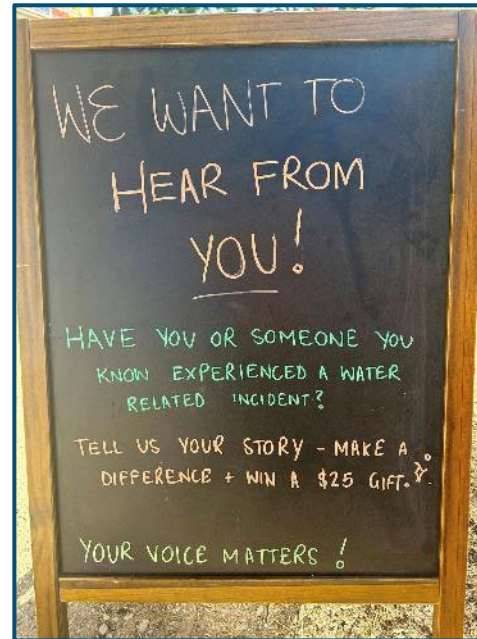 WE WANT TO
HEAR FROM
YOU!
HAVE YOU OR SOMEONE YOU
KNOW EXPERIENCED A WATER
RELATED INCIDENT?
TELL US YOUR STORY - MAKE A
DIFFERENCE + WIN A $25 GIFT.
YOUR VOICE MATTERS!